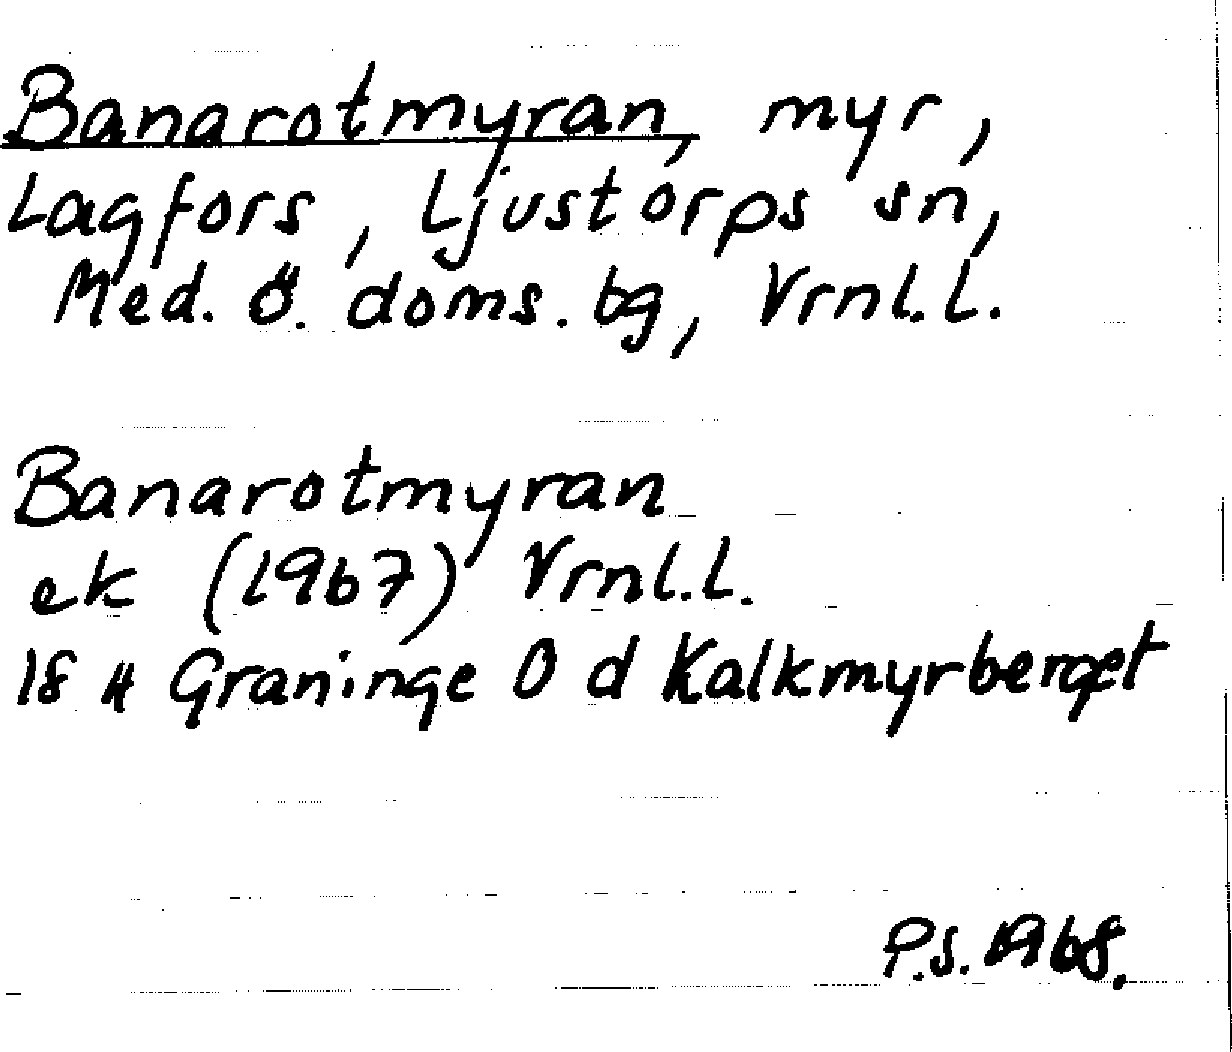 Banarotmyran, myr,
Lagfors, Ljustorps sn,
Med. ö. doms. bg, Vrnl.l.
Banarotmyran
ek (1967) Vrnl.l.
18 H Graninge O d Kalkmyrberget
P.S. 1968.